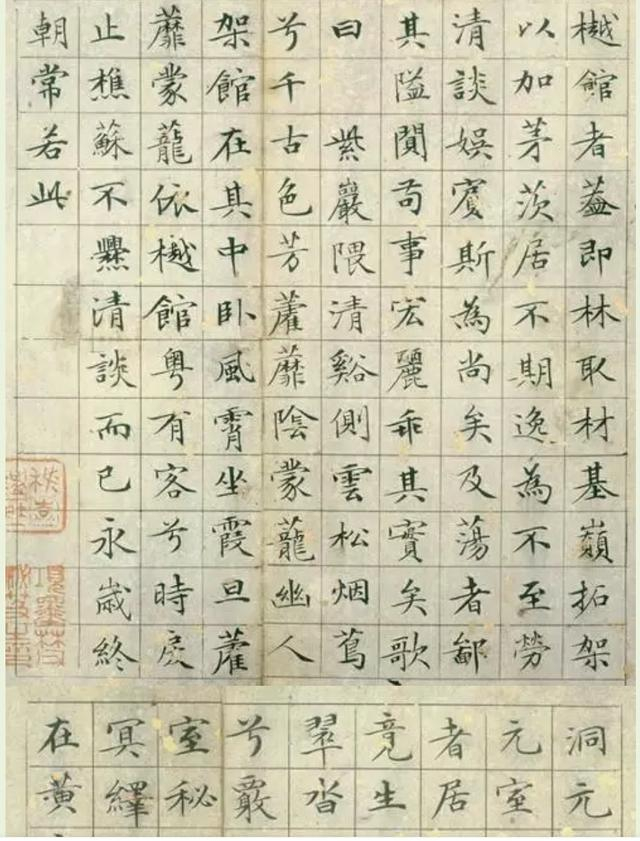 樾館者葢即林取材基巔拓架
以加茅茨居不期逸為不至勞
清談娛賓斯為尚矣及蕩者鄙
其隘閴苟事宏麗乖其實矣歌
曰 紫巖隈清谿側雲松烟蔦
兮千古色芳蘿蘼陰蒙蘢幽人
架館在其中卧風霄坐霞旦蘿
蘼蒙蘢依樾館粤有客兮時戾
止樵蘇不爨清談而已永歲終
朝常若此
洞元
元室
者居
竟生
翠沓
兮嚴
室秘
冥繹
在黄